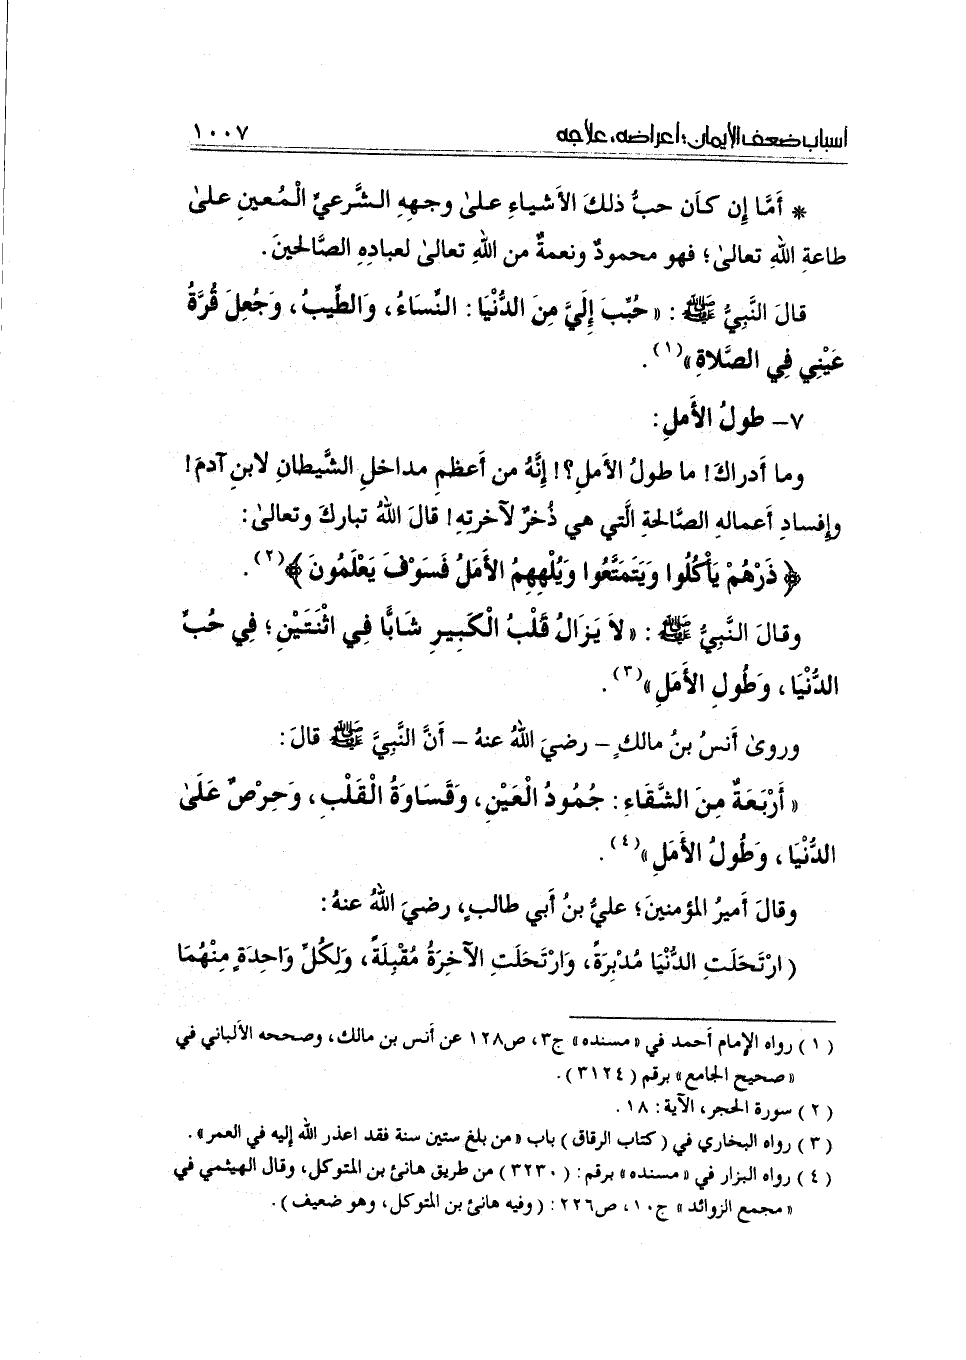 أسباب ضعف الإيمان؛ أعراضه، علاجه ١٠٠٧
* أمَّا إن كأن حبُّ ذلكَ الأشياءِ على وجههِ الشَّرعيِّ الْمُعينِ علىٰ
طاعةِ اللهِ تعالىٰ؛ فهو محمودٌ ونعمةٌ من اللهِ تعالىٰ لعبادِهِ الصَّالحينَ.
قالَ النَّبيُّ ﷺ : « حُبِّبَ إِلَيَّ مِنَ الدُّنْيَا : النِّسَاءُ، وَالطِّيبُ، وَجُعِلَ قُرَّةُ
عَيْنِي فِي الصَّلاةِ »(١).
٧– طولُ الأَملِ:
وما أدراكَ! ما طولُ الأملِ؟! إنَّهُ من أعظمِ مداخلِ الشَّيطانِ لابنِ آدمَ!
وإفسادِ أعمالهِ الصَّالحةِ الَّتي هي ذُخرٌ لآخرتِهِ! قالَ اللهُ تباركَ وتعالىٰ:
﴿ ذَرْهُمْ يَأْكُلُوا وَيَتَمَتَّعُوا وَيُلْهِهِمُ الأَمَلُ فَسَوْفَ يَعْلَمُونَ ﴾(٢).
وقالَ النَّبيُّ ﷺ : « لاَ يَزَالُ قَلْبُ الْكَبِيرِ شَابًّا فِي اثْنَتَيْنِ ؛ فِي حُبِّ
الدُّنْيَا ، وَطُولِ الأَمَلِ »(٣).
وروىٰ أنسُ بنُ مالكٍ – رضيَ اللهُ عنهُ – أنَّ النَّبيَّ ﷺ قالَ:
« أَرْبَعَةٌ مِنَ الشَّقَاءِ : جُمُودُ الْعَيْنِ، وَقَسَاوَةُ الْقَلْبِ، وَحِرْصٌ عَلَىٰ
الدُّنْيَا ، وَطُولُ الأَمَلِ »(٤).
وقالَ أميرُ المؤمنينَ؛ عليُّ بنُ أبي طالبٍ، رضيَ اللهُ عنهُ:
( ارْتَحَلَتِ الدُّنْيَا مُدْبِرَةً، وَارْتَحَلَتِ الآخِرَةُ مُقْبِلَةً، وَلِكُلِّ وَاحِدَةٍ مِنْهُمَا
(١) رواه الإمام أحمد في «مسنده» ج٣، ص١٢٨ عن أنس بن مالك، وصححه الألباني في
«صحيح الجامع» برقم (٣١٢٤).
(٢) سورة الحجر، الآية: ١٨.
(٣) رواه البخاري في (كتاب الرقاق) باب «من بلغ ستين سنة فقد اعذر الله إليه في العمر».
(٤) رواه البزار في «مسنده» برقم: (٣٢٣٠) من طريق هانئ بن المتوكل، وقال الهيثمي في
«مجمع الزوائد» ج١٠، ص٢٢٦: (وفيه هانئ بن المتوكل، وهو ضعيف).